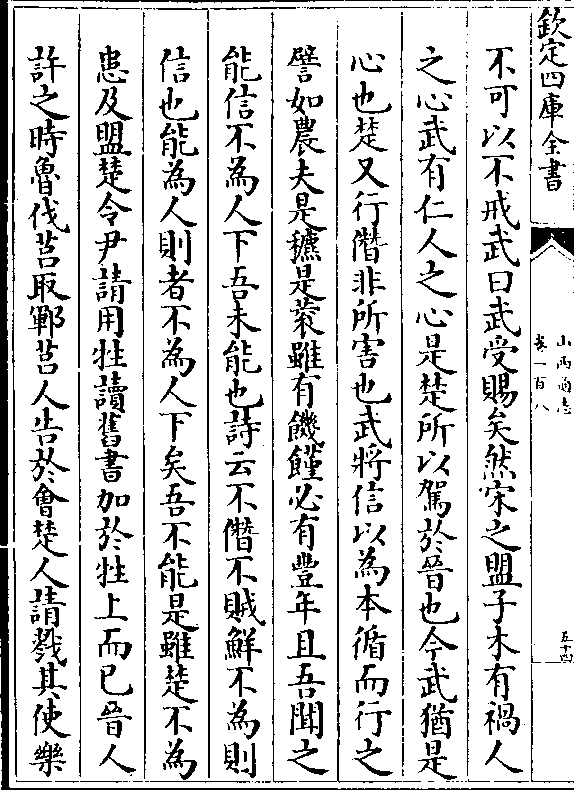 欽定四庫全書
山西通志
卷一百八
五十四
不可以不戒武曰武受賜矣然宋之盟子木有禍人
之心武有仁人之心是楚所以駕於晉也今武猶是
心也楚又行僭非所害也武將信以為本循而行之
譬如農夫是穮是蔉雖有饑饉必有豐年且吾聞之
能信不為人下吾未能也詩云不僭不賊鮮不為則
信也能為人則者不為人下矣吾不能是難楚不為
患及盟楚令尹請用牲讀舊書加於牲上而已晉人
許之時魯伐莒取鄆莒人告於會楚人請戮其使樂